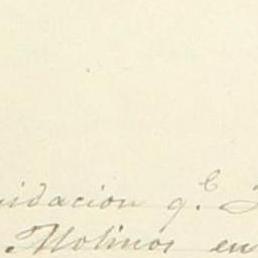 uidacion q.e
Molinos en